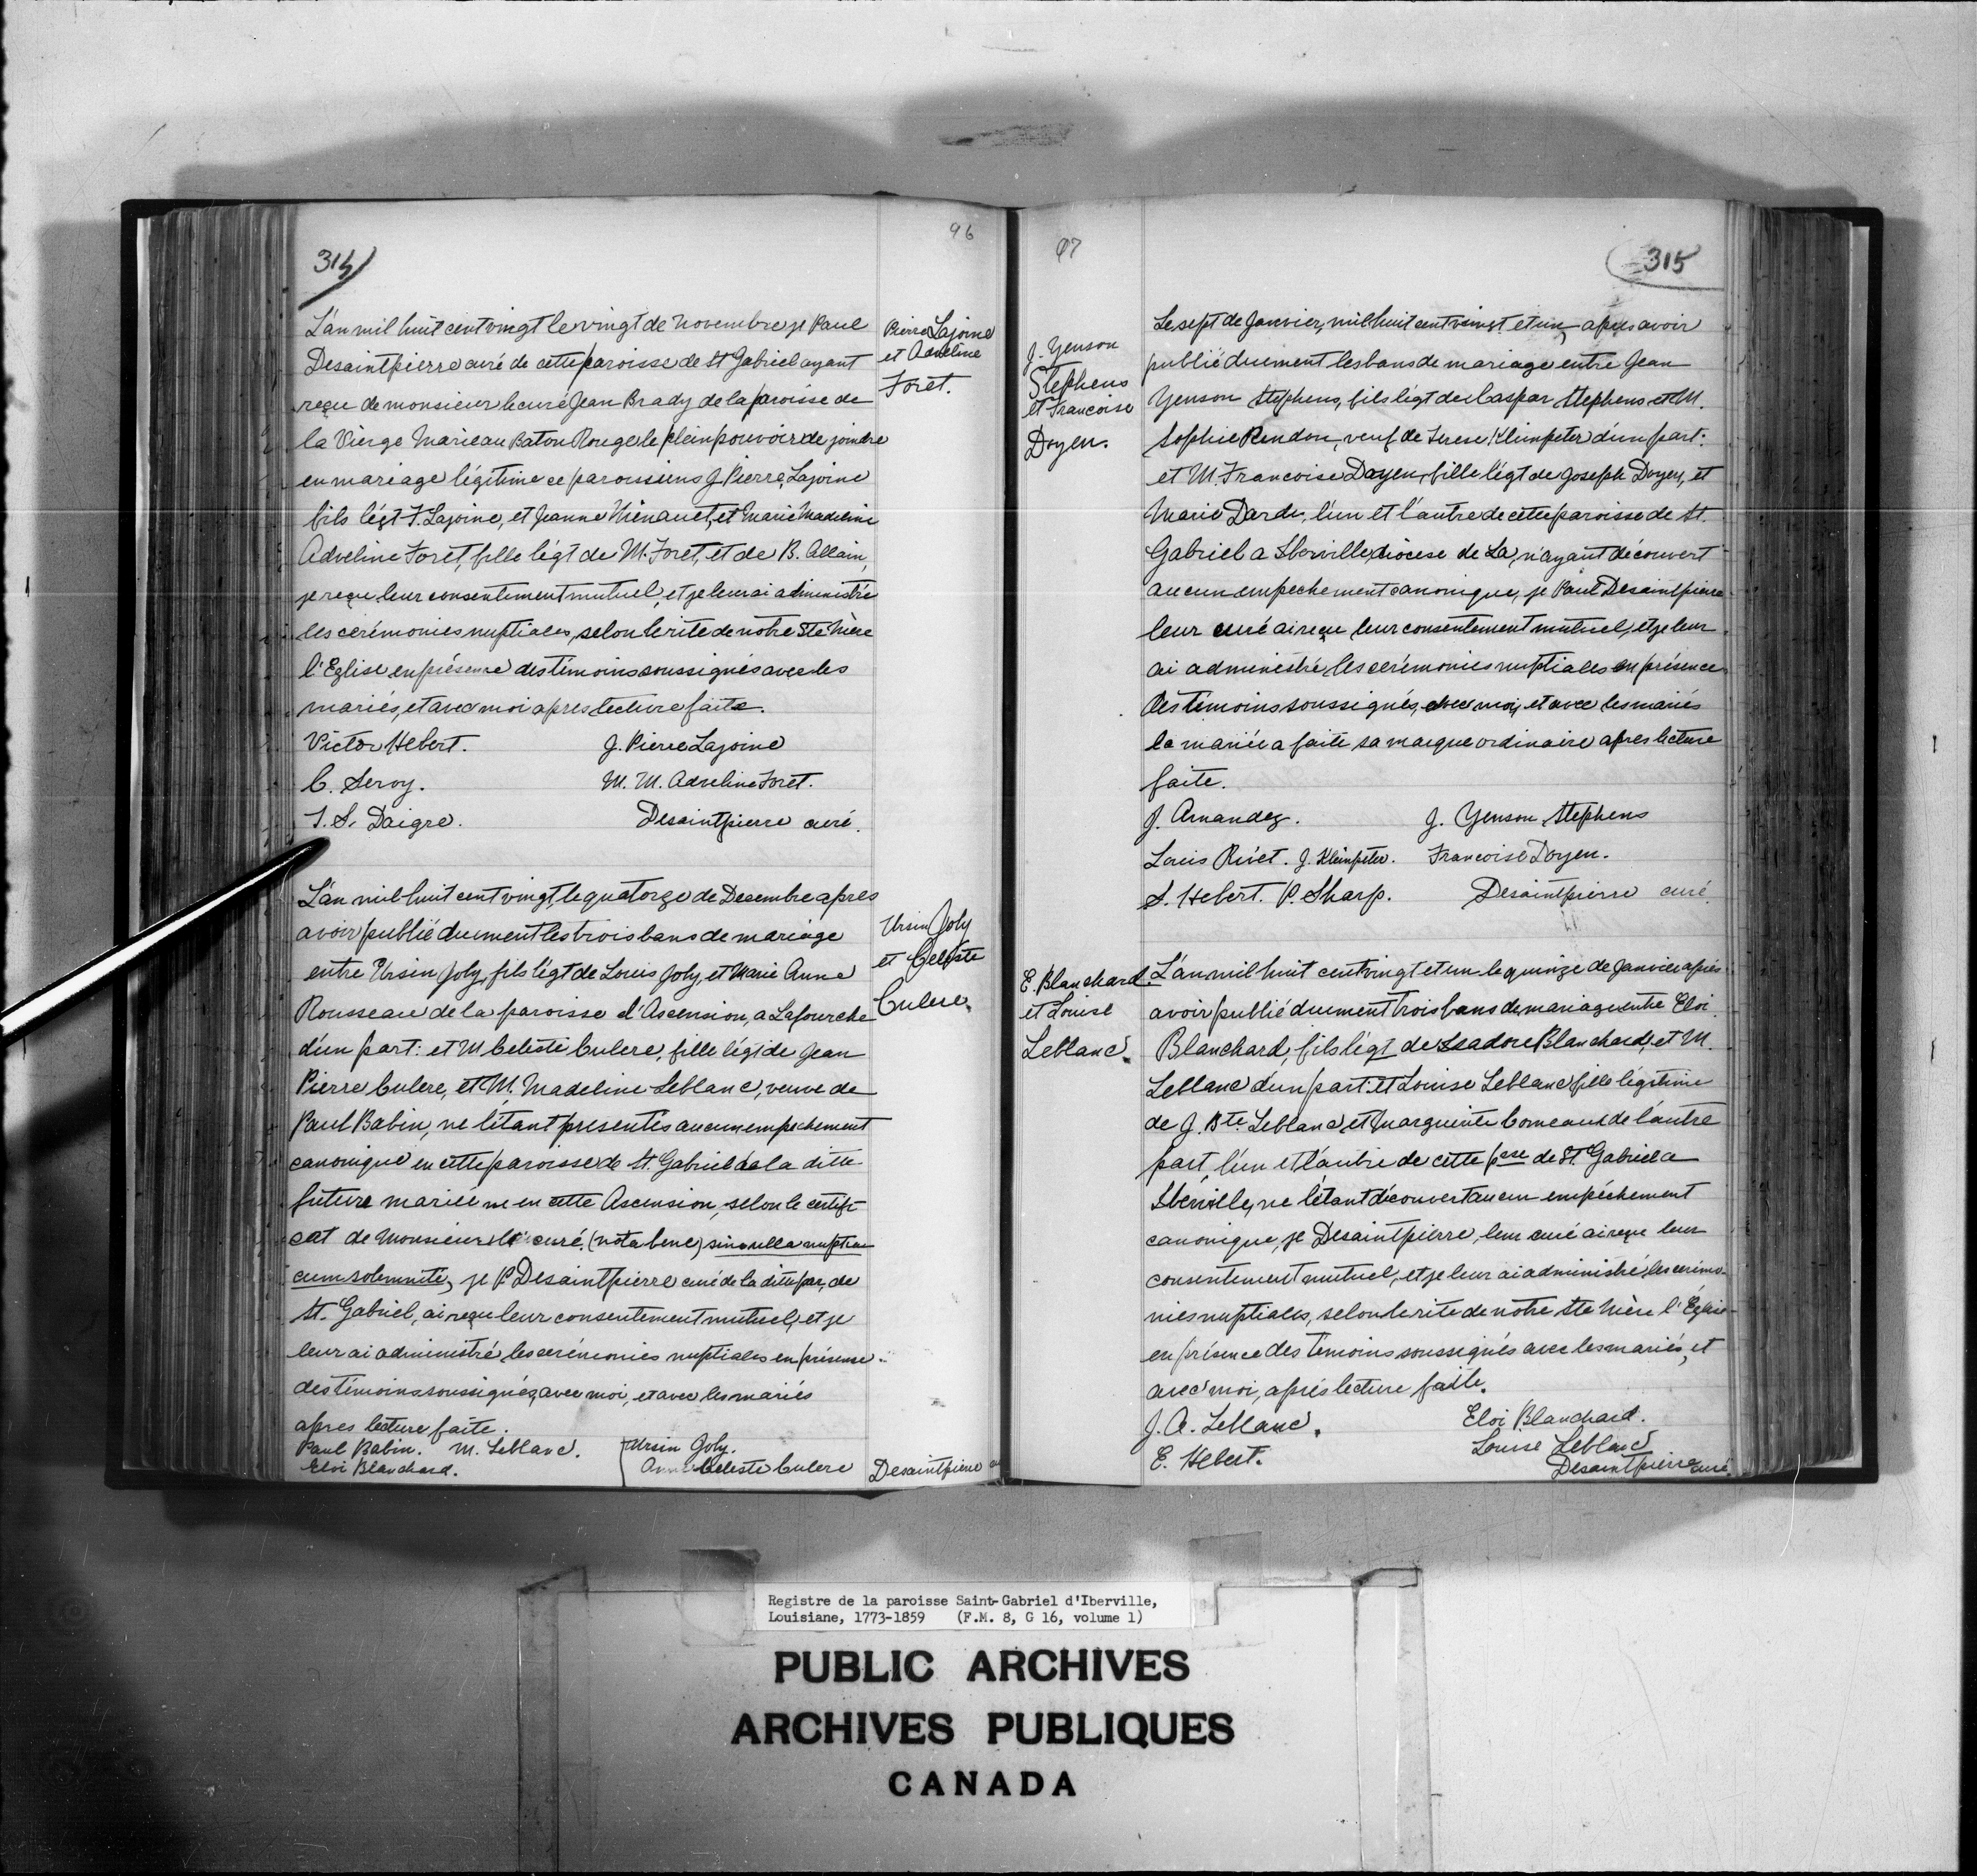 96
314
L'an mil huit cent vingt le vingt de Novembre je Paul
Desaintpierre curé de cette paroisse de St Gabriel ayant
reçu de monsieur le curé Jean Brady de la paroisse de
la Vierge Marie au Baton Rouge le plein pouvoir de joindre
en mariage légitime ce paroissiens J. Pierre Lajoine
fils légt F. Lajoine, et Jeanne et Marie Madeline
Adveline Foret, fille légt de M. Foret, et de B. Allain,
je reçu leur consentement mutuel, et je leur ai administré
les cerémonies nuptiales, selon le rite de notre Ste Mère
l'Eglise en présence des témoins soussignés avec les
mariés, et avec moi apres lecture faite.
Victor Hebert. J. Pierre Lajoine
C. Leroy. M. M. Adveline Foret.
J. S. Daigre. Desaintpierre curé.
Pierre Lajoine
et Adveline
Foret.
L'an mil huit cent vingt, le quatorze de Decembre apres
avoir publié duement les trois bans de mariage
entre Ursin Joly, fils légt de Louis Joly, et Marie Anne
Rousseau de la paroisse d'Ascension, a Lafourche
d'un part: et M Celeste Culere, fille légt de Jean
Pierre Culere, et M. Madeline Leblanc, veuve de
Paul Babin, ne létant presentés aucun empechement
canonique en cette paroisse de St. Gabriel de la ditte
future mariée ne en cette Ascension, selon le certifi-
cat de Monsieur le curé. (nota bene) sine ulla
cum solemnité, je P Desaintpierre curé de la ditte par, de
St. Gabriel, ai reçu leur consentement mutuel, et je
leur ai administré les cerémonies nuptiales en présense
des témoins soussignéz, avec moi, et avec les mariés
apres lecture faite.
Paul Babin. M. Leblanc. Ursin Joly.
Eloi Blanchard. Anne Celeste Culere Desaintpierre
Ursin Joly
et Celeste
Culere.
97
315
J. Yenson
Stephens
et Francoise
Doyen.
Le sept de Janvier, mil huit cent vingt et un, apres avoir
publié duement les bans de mariage entre Jean
Yenson Stephens, fils légt de Caspar Stephens et M.
Sophie Rendon, veuf de Terese Klimpeter d'un part:
et M. Francoise Doyen, fille légt de Joseph Doyen, et
Marie Darde, l'un et l'autre de cette paroisse de St.
Gabriel a Iberville, diocese de La, n'ayant découvert
aucun empechement canonique, je Paul Desaintpierre
leur curé ai reçu leur consentement mutuel, et je leur
ai administré les cerémonies nuptiales en présence
des témoins soussignés, avec moi, et avec les mariés
la mariée a faite sa marque ordinaire apres lecture
faite.
J. Arnandez. J. Yenson Stephens
Louis Rivet. J. Kleinpeter. Francoise Doyen.
S. Hebert. P. Sharp. Desaintpierre curé.
E. Blanchard
et Louise
Leblanc.
L'an mil huit cent vingt et un le quinze de Janvier après
avoir publié duement trois bans de mariage entre Eloi
Blanchard, fils légt de Isadore Blanchard, et M.
Leblanc d'un part: et Louise Leblanc fille légitime
de J. Bte. Leblanc, et Marguerite Comeaux de l'autre
part, l'un et l'autre de cette psse de St. Gabriel a
Iberville, ne létant découvert aucun empéchement
canonique, je Desaintpierre, leur curé ai reçu leur
consentement mutuel, et je leur ai administré les cerémo-
nies nuptiales, selon le rite de notre Ste Mère l'Église
en présence des témoins soussignés avec les mariés, et
avec moi, aprés lecture faite.
J. A. Leblanc. Eloi Blanchard.
E. Hebert. Louise Leblanc
Desaintpierre curé.
Registre de la paroisse Saint-Gabriel d'Iberville,
Louisiane, 1773-1859 (F.M. 8, G 16, volume 1)
PUBLIC ARCHIVES
ARCHIVES PUBLIQUES
CANADA